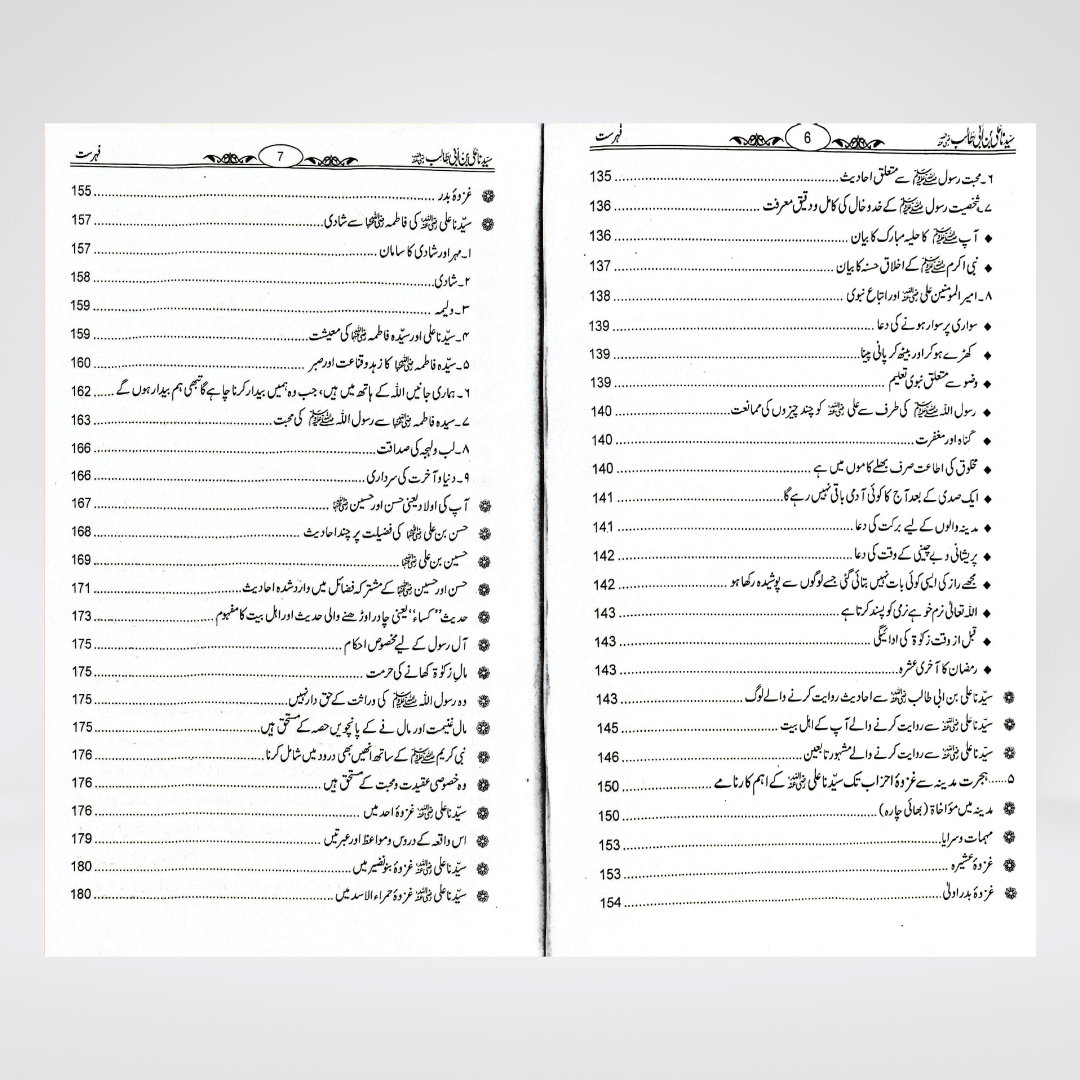 سیّدنا علی بن ابی طالب رضی اللہ عنہ 6 فہرست
۶۔ محبت رسول ﷺ سے متعلق احادیث 135
۷۔ شخصیت رسول ﷺ کے خدوخال کی کامل و دقیق معرفت 136
♦ آپ ﷺ کا حلیہ مبارک کا بیان 136
♦ نبی اکرم ﷺ کے اخلاق حسنہ کا بیان 137
۸۔ امیر المومنین علی رضی اللہ عنہ اور اتباع نبوی 138
♦ سواری پر سوار ہونے کی دعا 139
♦ کھڑے ہوکر اور بیٹھ کر پانی پینا 139
♦ وضو سے متعلق نبوی تعلیم 139
♦ رسول اللہ ﷺ کی طرف سے علی رضی اللہ عنہ کو چند چیزوں کی ممانعت 140
♦ گناہ اور مغفرت 140
♦ مخلوق کی اطاعت صرف بھلے کاموں میں ہے 140
♦ ایک صدی کے بعد آج کا کوئی آدمی باقی نہیں رہے گا 141
♦ مدینہ والوں کے لیے برکت کی دعا 141
♦ پریشانی و بے چینی کے وقت کی دعا 142
♦ مجھے راز کی ایسی کوئی بات نہیں بتائی گئی جسے لوگوں سے پوشیدہ رکھا ہو 142
♦ اللہ تعالیٰ نرم خو ہے نرمی کو پسند کرتا ہے 143
♦ قبل از وقت زکوٰۃ کی ادائیگی 143
♦ رمضان کا آخری عشرہ 143
❁ سیّدنا علی بن ابی طالب رضی اللہ عنہ سے احادیث روایت کرنے والے لوگ 143
❁ سیّدنا علی رضی اللہ عنہ سے روایت کرنے والے آپ کے اہل بیت 145
❁ سیّدنا علی رضی اللہ عنہ سے روایت کرنے والے مشہور تابعین 146
۵..... ہجرت مدینہ سے غزوۂ احزاب تک سیّدنا علی رضی اللہ عنہ کے اہم کارنامے 150
❁ مدینہ میں مؤاخاۃ (بھائی چارہ) 150
❁ مہمات و سرایا 153
❁ غزوۂ عشیرہ 153
❁ غزوۂ بدر اولیٰ 154
سیّدنا علی بن ابی طالب رضی اللہ عنہ 7 فہرست
❁ غزوۂ بدر 155
❁ سیّدنا علی رضی اللہ عنہ کی فاطمہ رضی اللہ عنہا سے شادی 157
۱۔ مہر اور شادی کا سامان 157
۲۔ شادی 158
۳۔ ولیمہ 159
۴۔ سیّدنا علی اور سیّدہ فاطمہ رضی اللہ عنہما کی معیشت 159
۵۔ سیّدہ فاطمہ رضی اللہ عنہا کا زہد و قناعت اور صبر 160
۶۔ ہماری جانیں اللہ کے ہاتھ میں ہیں، جب وہ ہمیں بیدار کرنا چاہے گا تبھی ہم بیدار ہوں گے 162
۷۔ سیدہ فاطمہ رضی اللہ عنہا سے رسول اللہ ﷺ کی محبت 163
۸۔ لب و لہجہ کی صداقت 166
۹۔ دنیا و آخرت کی سرداری 166
❁ آپ کی اولاد یعنی حسن اور حسین رضی اللہ عنہما 167
❁ حسن بن علی رضی اللہ عنہما کی فضیلت پر چند احادیث 168
❁ حسین بن علی رضی اللہ عنہما 169
❁ حسن اور حسین رضی اللہ عنہما کے مشترکہ فضائل میں وارد شدہ احادیث 171
❁ حدیث ’’کساء‘‘ یعنی چادر اوڑھنے والی حدیث اور اہل بیت کا مفہوم 173
❁ آل رسول کے لیے مخصوص احکام 175
❁ مال زکوٰۃ کھانے کی حرمت 175
❁ وہ رسول اللہ ﷺ کی وراثت کے حق دار نہیں 175
❁ مال غنیمت اور مال فے کے پانچویں حصہ کے مستحق ہیں 175
❁ نبی کریم ﷺ کے ساتھ انھیں بھی درود میں شامل کرنا 176
❁ وہ خصوصی عقیدت و محبت کے مستحق ہیں 176
❁ سیّدنا علی رضی اللہ عنہ غزوۂ احد میں 176
❁ اس واقعہ کے دروس و مواعظ اور عبرتیں 179
❁ سیّدنا علی رضی اللہ عنہ غزوۂ بنو نضیر میں 180
❁ سیّدنا علی رضی اللہ عنہ غزوۂ حمراء الاسد میں 180